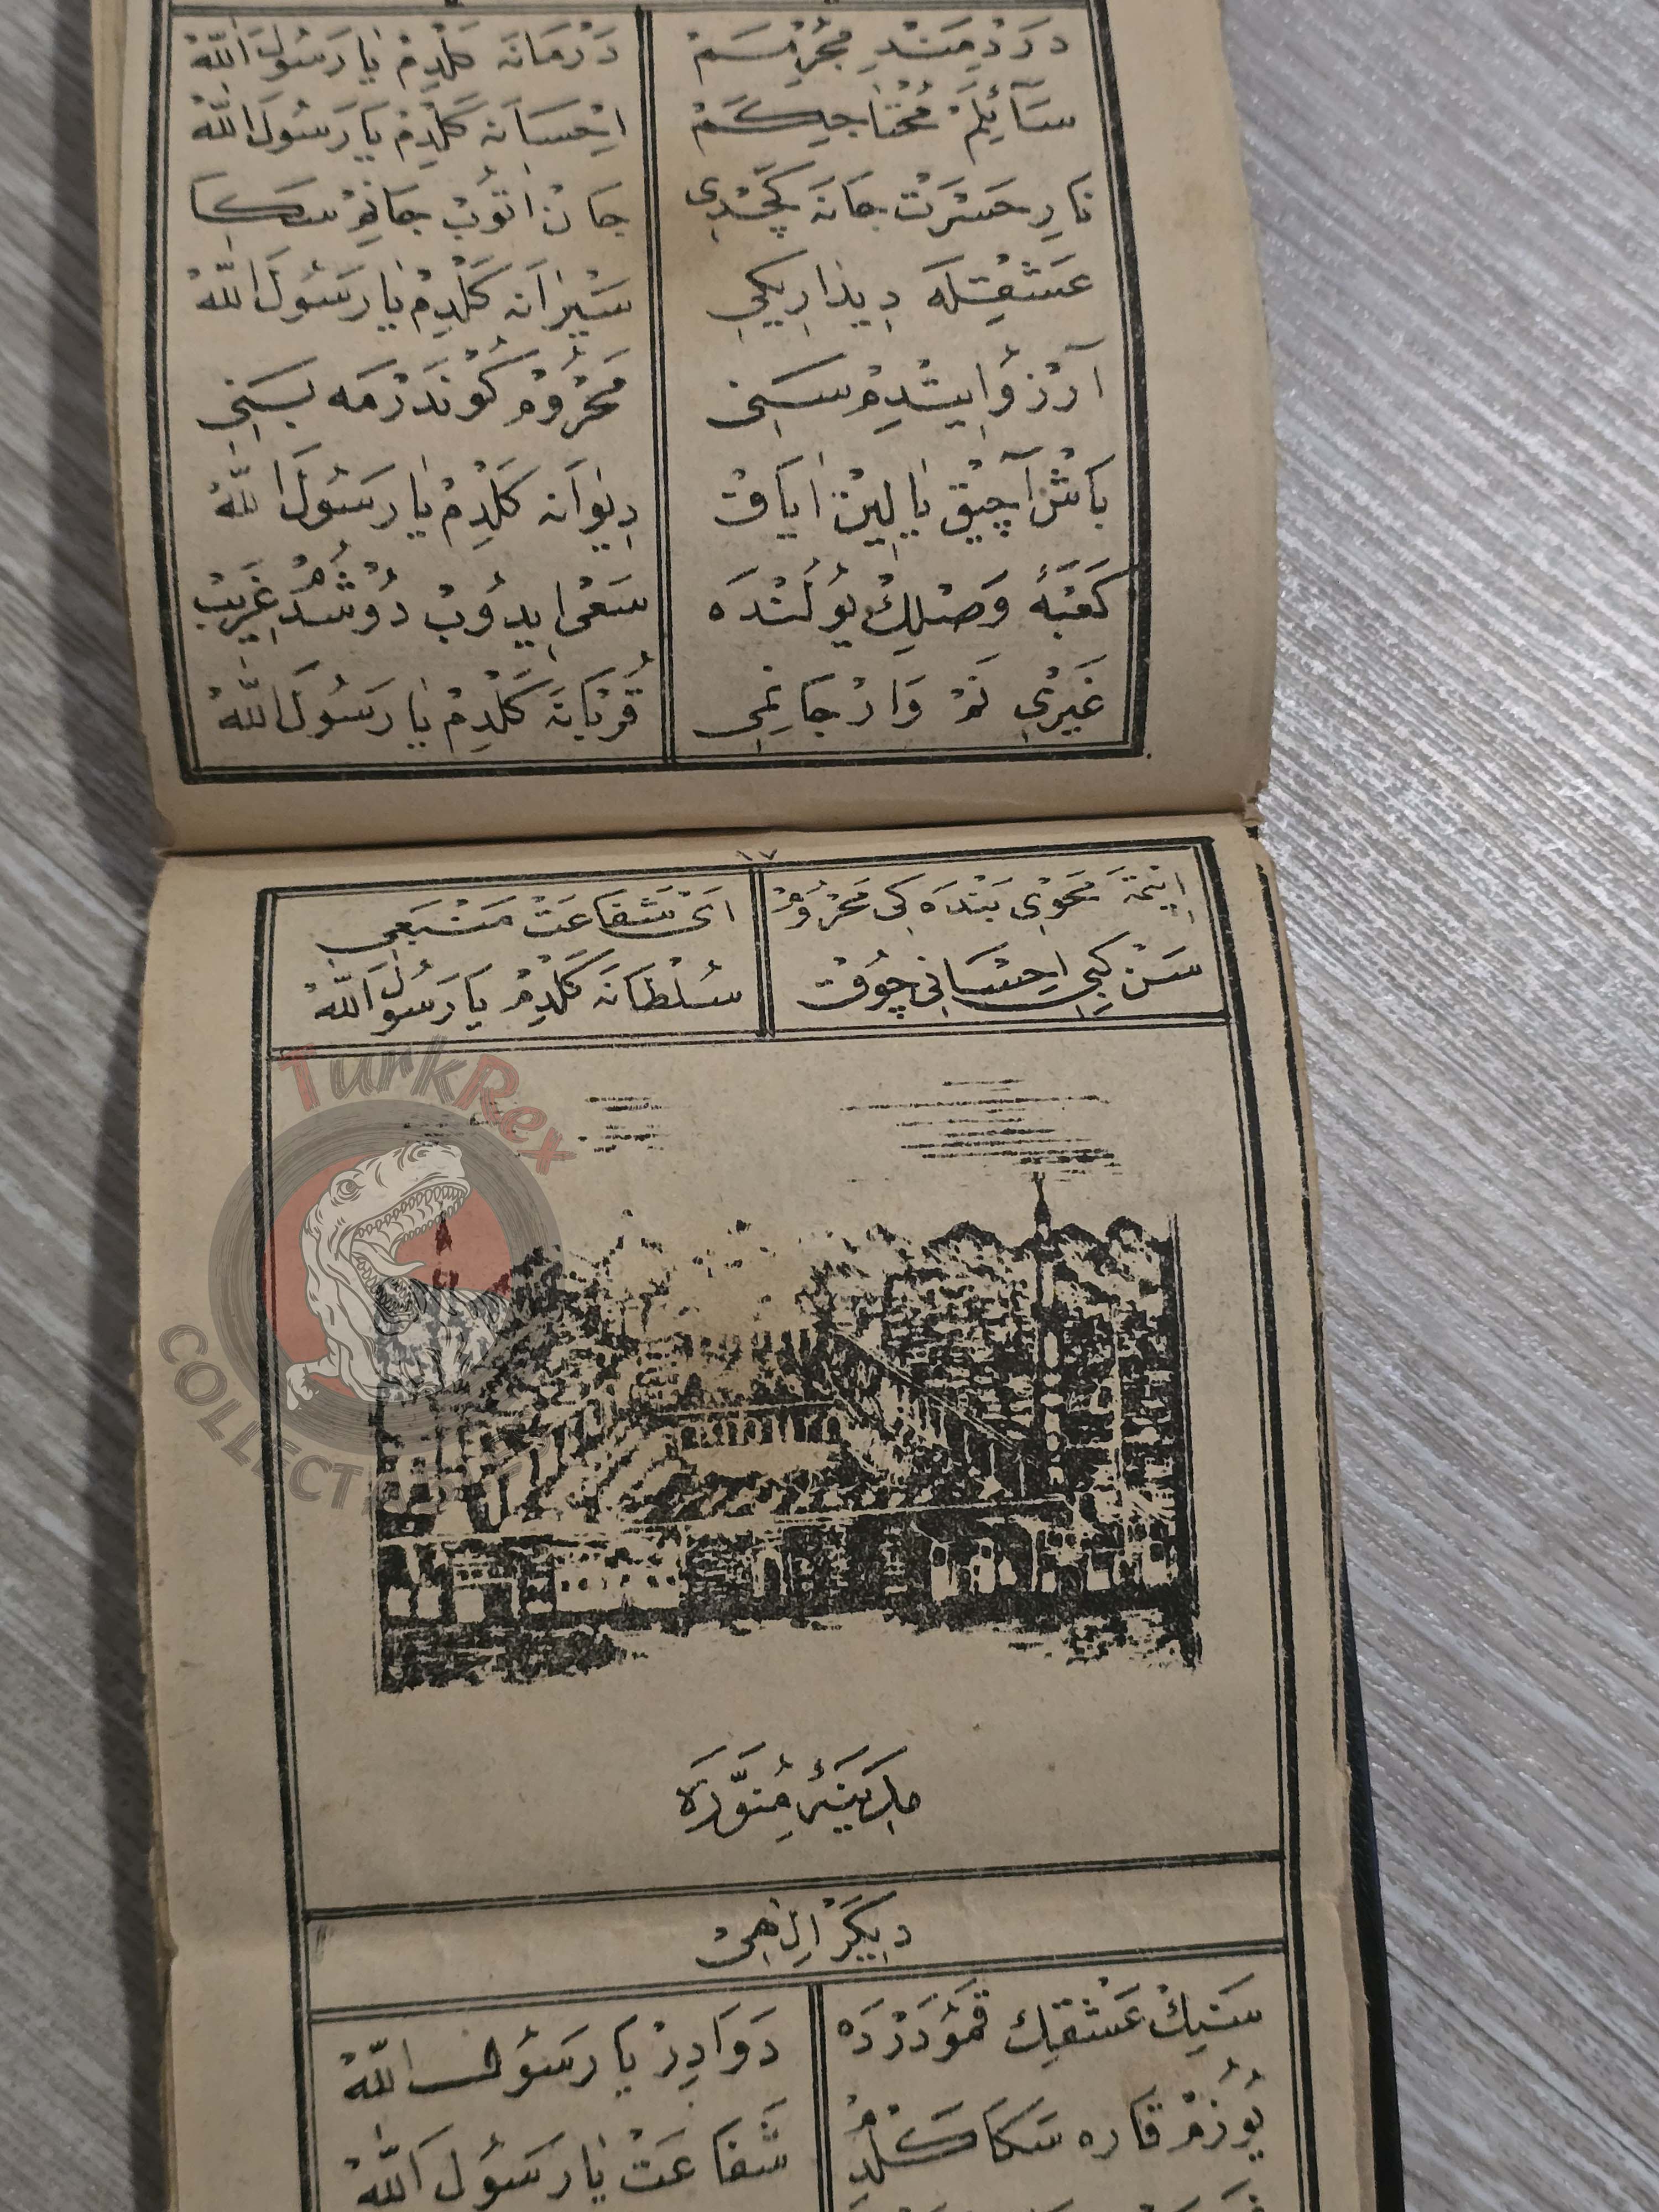 دَرْدِمَنْدِ مُجْرِمَمْ دَرْمَانَه كَلْدِمْ يَا رَسُولَ اللّٰهْ
سَآئِلَمْ مُحْتَاجِكَمْ اِحْسَانَه كَلْدِمْ يَا رَسُولَ اللّٰهْ
نَارِ حَسْرَتْ جَانَه كَچْدِى جَانْ اَتُوبْ جَانِمْ سَكَا
عَشْقِڭلَه دِيدَارِيكِى سَيْرَانَه كَلْدِمْ يَا رَسُولَ اللّٰهْ
آرْزُو اِيتْدِمْ سَنِى مَحْرُومْ كُونْدَرْمَه بَنِى
بَاشْ آچِيقْ يَالِينْ اَيَاقْ دِيوَانَه كَلْدِمْ يَا رَسُولَ اللّٰهْ
كَعْبَهٔ وَصْلِكْ يُولُنْدَه سَعْى اِيدُوبْ دُوشْدُمْ غَرِيبْ
غَيْرِى نَمْ وَارْ جَانِمِى قُرْبَانَه كَلْدِمْ يَا رَسُولَ اللّٰهْ
١٧
اِيتْمَه مَحْوِى بَنْدَه كِى مَحْرُومْ اَىْ شَفَاعَتْ مَنْبَعِى
سَنْ كِبِى اِحْسَانِى چُوقْ سُلْطَانَه كَلْدِمْ يَا رَسُولَ اللّٰهْ
TurkRex
COLLECTION
مَدِينَهٔ مُنَوَّرَه
دِيكَرْ اِلٰهِى
سَنِكْ عَشْقِكْ قَمُو دَرْدَه دَوَادِرْ يَا رَسُولَ اللّٰهْ
يُوزُمْ قَارَه سَكَا كَلْدِمْ شَفَاعَتْ يَا رَسُولَ اللّٰهْ